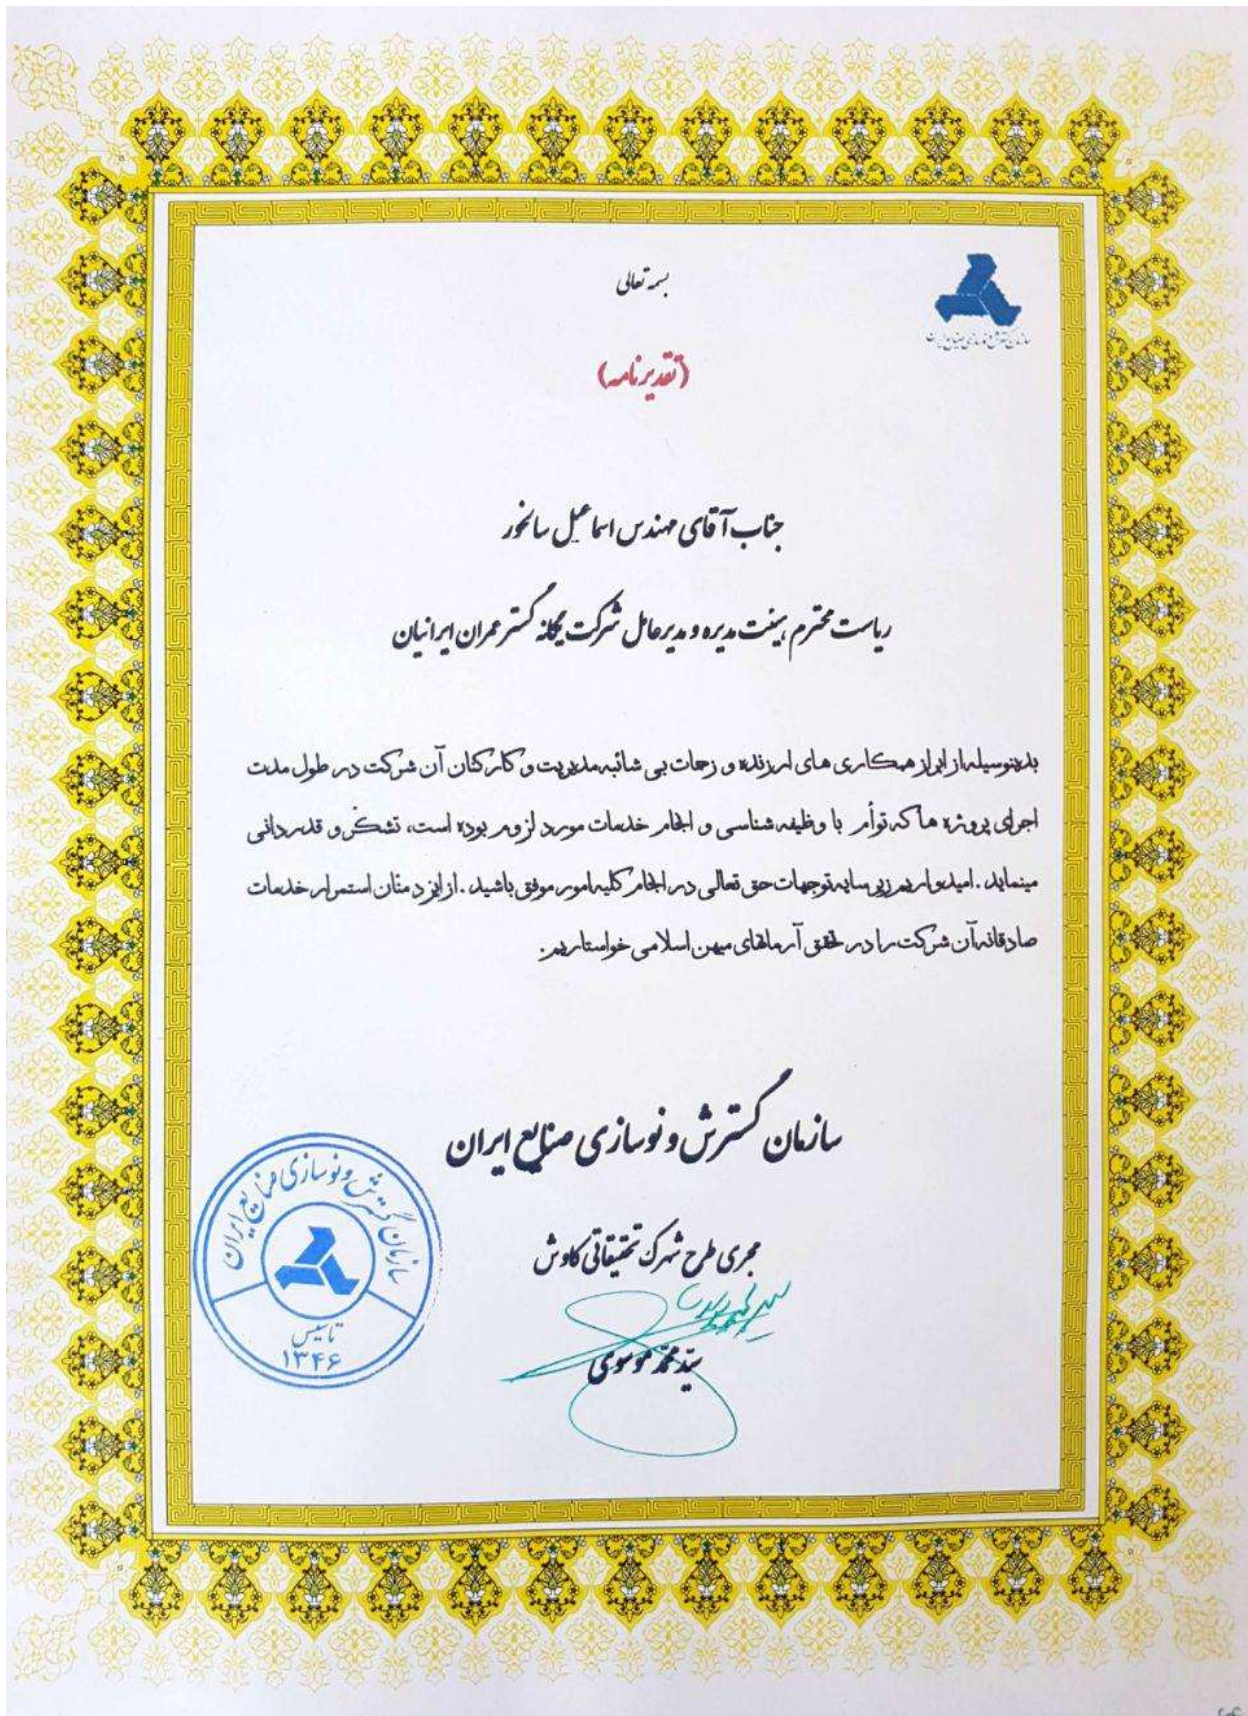 بسمه تعالی
سازمان گسترش و نوسازی صنایع ایران
(تقدیرنامه)
جناب آقای مهندس اسماعیل سالخور
ریاست محترم هیئت مدیره و مدیرعامل شرکت یگانه گستر عمران ایرانیان
بدینوسیله از ابراز همکاری های ارزنده و زحمات بی شائبه مدیریت و کارکنان آن شرکت در طول مدت
اجرای پروژه ها که توأم با وظیفه شناسی و انجام خدمات مورد لزوم بوده است، تشکر و قدردانی
مینماید. امیدواریم زیر سایه توجهات حق تعالی در انجام کلیه امور موفق باشید. از ایزد منان استمرار خدمات
صادقانه آن شرکت را در تحقق آرمانهای میهن اسلامی خواستاریم.
سازمان گسترش و نوسازی صنایع ایران
مجری طرح شهرک تحقیقاتی کاوش
سید محمد موسوی
سازمان گسترش و نوسازی صنایع ایران
تاسیس
۱۳۴۶